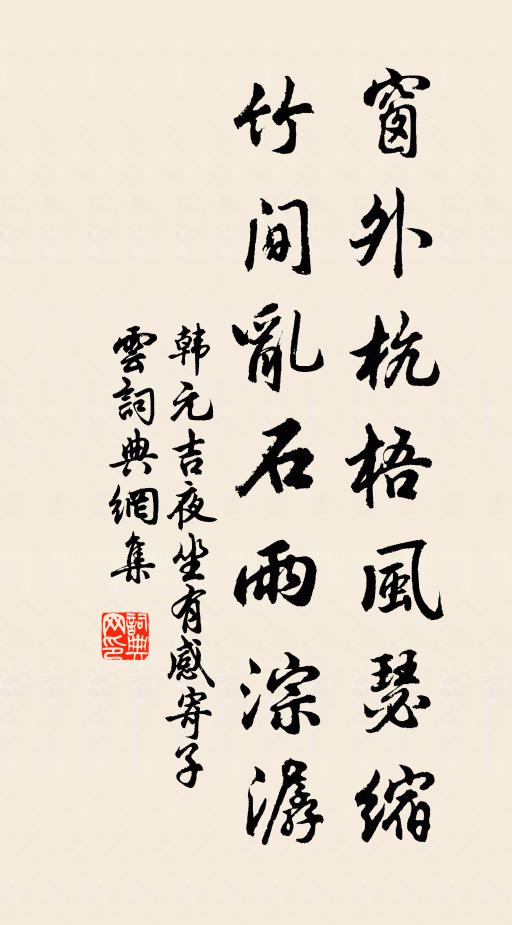 窗外杭梧風瑟縮
竹間亂石雨淙潺
韩元吉夜坐有感寄子
雲詞典網集
詞典
网印